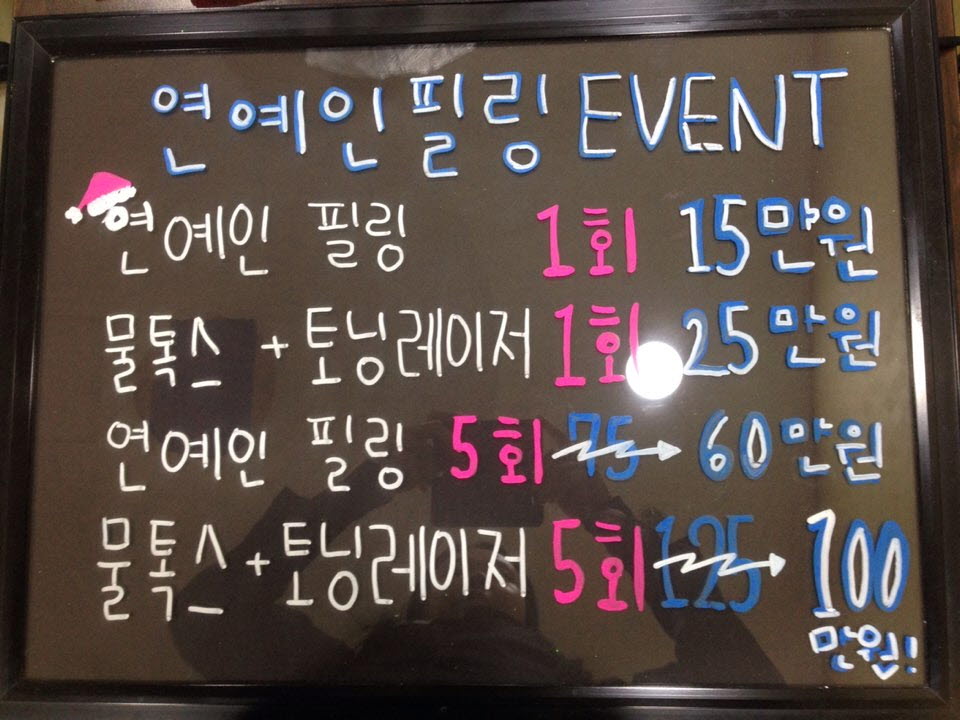 연예인필링 EVENT
연예인 필링 1회 15만원
물톡스 + 토닝레이저 1회 25만원
연예인 필링 5회 75 → 60만원
물톡스 + 토닝레이저 5회 125 → 100
만원!